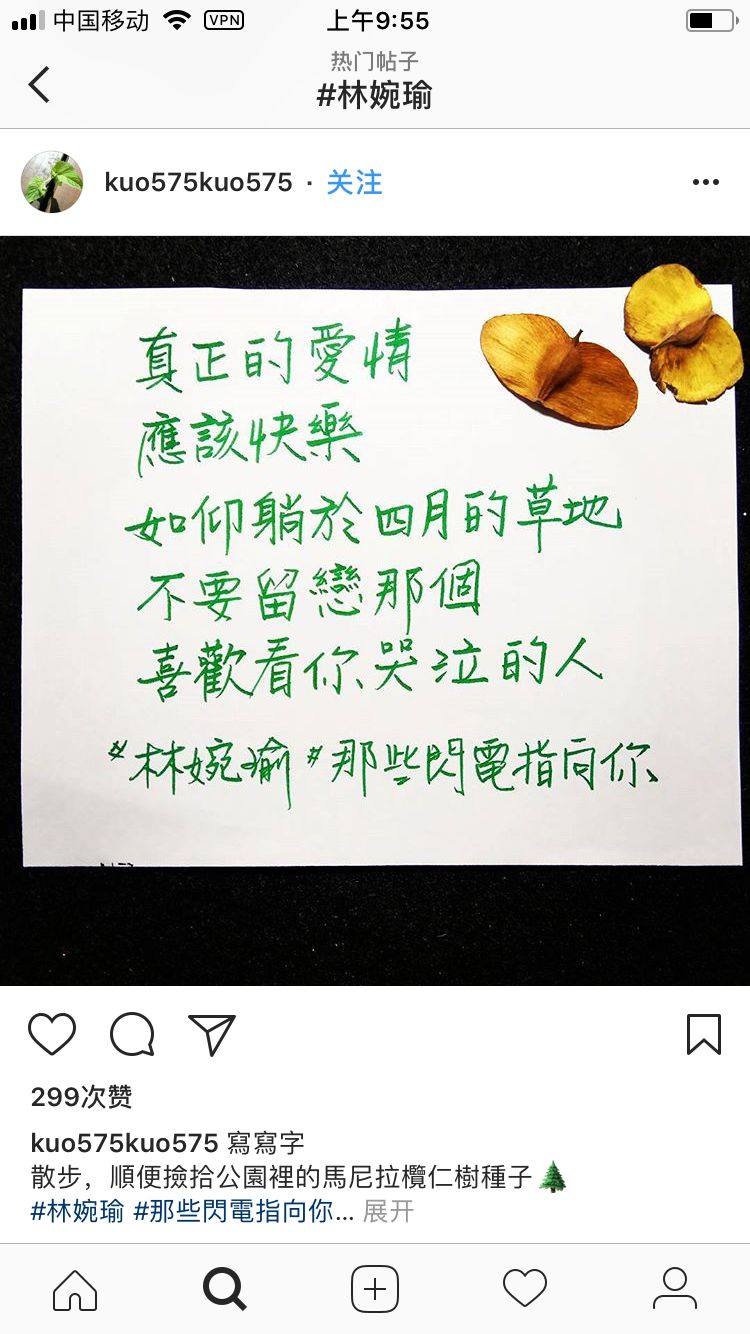 中国移动 VPN 上午9:55
热门帖子
#林婉瑜
kuo575kuo575 · 关注
真正的愛情
應該快樂
如仰躺於四月的草地
不要留戀那個
喜歡看你哭泣的人
#林婉瑜#那些閃電指向你
299次赞
kuo575kuo575 寫寫字
散步，順便撿拾公園裡的馬尼拉欖仁樹種子
#林婉瑜 #那些閃電指向你... 展开